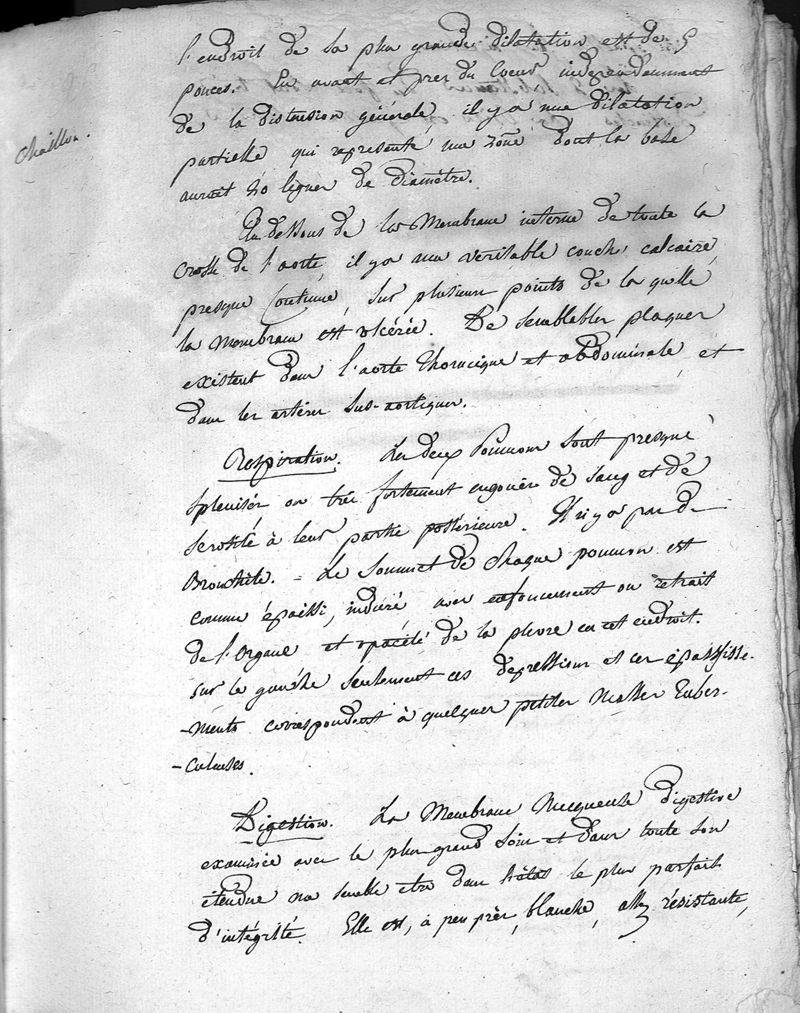 Chaillon.
l'endroit de la plus grande dilatation est de 5
pouces. En avant et près du Coeur indépendamment
de la distension générale il y a une dilatation
partielle qui représente une zône dont la base
auroit 20 lignes de diamètre.
Au dessous de la Membrane interne de toute la
crosse de l'aorte, il y a une véritable couche calcaire
presque Continue, sur plusieurs points de la quelle
la Membrane est ulcérée. De semblables plaques
existent dans l'aorte thoracique et abdominale, et
dans les artères sus-aortiques.
Respiration. Les deux Poumons sont presque
splenisés ou très fortement engoués de sang et de
serosité à leur partie postérieure. Il n'y a pas de
Bronchite. - Le Sommet de chaque poumon est
comme épaissi, induré, avec enfoncement ou retrait
de l'Organe et opacité de la plevre en cet endroit.
sur le gauche seulement ces depressions et ces épaississe-
-ments correspondent à quelques petites Masses Tuber-
-culeuses.
Digestion. La Membrane Muqueuse digestive
examinée avec le plus grand soin et dans toute son
étendue na semblé être dans l'état le plus parfait
d'intégrité. Elle est, à peu près, blanche, assez résistante,